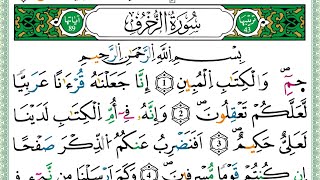 سُورَةُ الزُّخْرُفِ
بِسْمِ اللَّهِ الرَّحْمَٰنِ الرَّحِيمِ
حمٓ ۝١ وَالْكِتَٰبِ الْمُبِينِ ۝٢ إِنَّا جَعَلْنَٰهُ قُرْءَٰنًا عَرَبِيًّا
لَعَلَّكُمْ تَعْقِلُونَ ۝٣ وَإِنَّهُ فِىٓ أُمِّ الْكِتَٰبِ لَدَيْنَا
لَعَلِىٌّ حَكِيمٌ ۝٤ أَفَنَضْرِبُ عَنكُمُ الذِّكْرَ صَفْحًا
أَن كُنتُمْ قَوْمًا مُّسْرِفِينَ ۝٥ وَكَمْ أَرْسَلْنَا مِن نَّبِىٍّ فِى